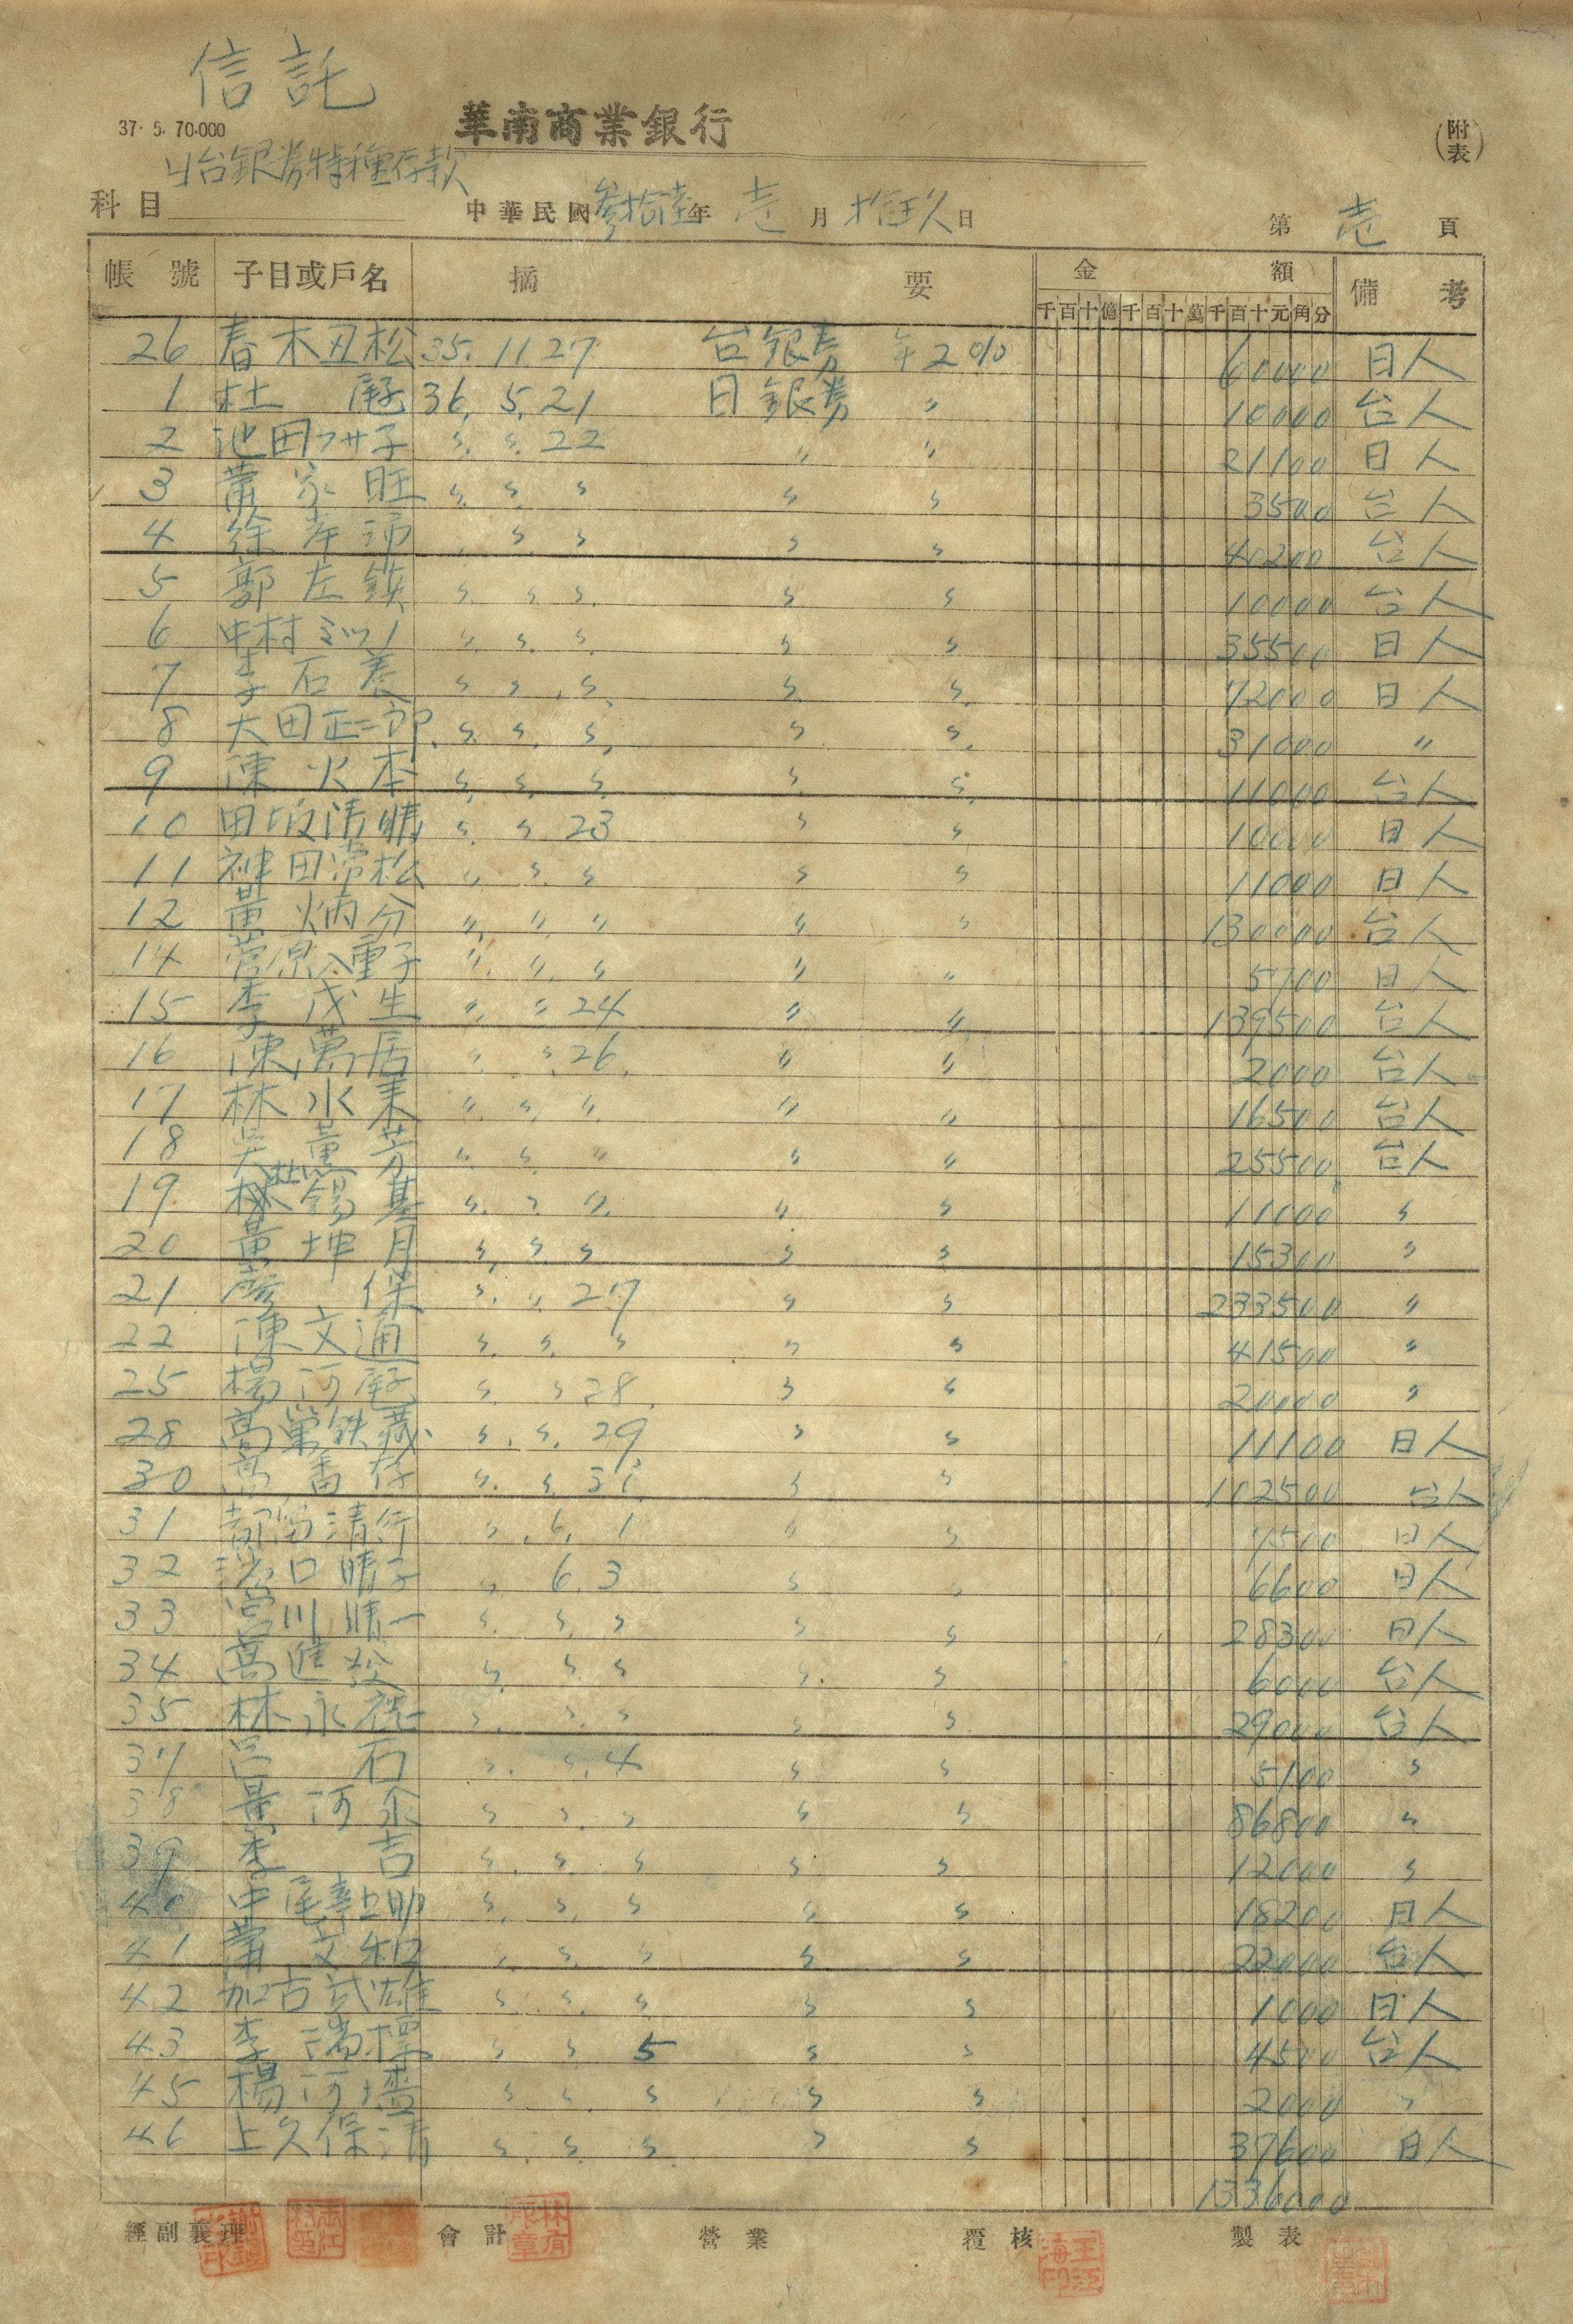 信託
37. 5. 70.000
華南商業銀行
(附表)
日台銀券特種存款
科目
中華民國參拾陸年壱月拾玖日
第壱頁
帳號 子目或戶名 摘要 金額 備考
千百十億千百十萬千百十元角分
26 春木丑松 35. 11. 27 台銀券 年2% 60000 日人
1 杜 屘 36. 5. 21 日銀券 〃 10000 台人
2 池田フサ子 〃 〃 22 〃 〃 21100 日人
3 蕭家旺 〃 〃 〃 〃 〃 3500 台人
4 徐 〃 〃 〃 〃 40200 台人
5 郭左鎮 〃 〃 〃 〃 〃 10000 台人
6 中村ミツノ 〃 〃 〃 〃 〃 35500 日人
7 李石養 〃 〃 〃 〃 〃 72000 日人
8 大田正二郎 〃 〃 〃 〃 〃 31000 〃
9 陳火本 〃 〃 〃 〃 〃 11000 台人
10 田坂清晴 〃 〃 23 〃 〃 10000 日人
11 神田常松 〃 〃 〃 〃 〃 11000 日人
12 黃炳分 〃 〃 〃 〃 〃 130000 台人
14 菅原八重子 〃 〃 〃 〃 〃 5700 日人
15 李茂生 〃 〃 24 〃 〃 139500 台人
16 陳萬居 〃 〃 26 〃 〃 2000 台人
17 林水来 〃 〃 〃 〃 〃 16500 台人
18 吳薫芳 〃 〃 〃 〃 〃 25500 台人
19 杜錫基 〃 〃 〃 〃 〃 11000 〃
20 黃坤月 〃 〃 〃 〃 〃 15300 〃
21 廖 保 〃 〃 27 〃 〃 233500 〃
22 陳文通 〃 〃 〃 〃 〃 41500 〃
25 楊河屘 〃 〃 28 〃 〃 20000 〃
28 高巣鉄藏 〃 〃 29 〃 〃 11100 日人
30 高番存 〃 〃 31 〃 〃 102500 台人
31 都留清行 〃 6. 1 〃 〃 7500 日人
32 口晴子 〃 6. 3 〃 〃 6600 日人
33 宮川晴一 〃 〃 〃 〃 〃 28300 日人
34 高進發 〃 〃 〃 〃 〃 6000 台人
35 林永 〃 〃 〃 〃 〃 29000 台人
37 呂 石 〃 〃 4 〃 〃 5100 〃
38 黃河 〃 〃 〃 〃 〃 86800 〃
39 李 吉 〃 〃 〃 〃 〃 12000 〃
40 中尾 〃 〃 〃 〃 〃 18200 日人
41 蕭文和 〃 〃 〃 〃 〃 22000 台人
42 加古武雄 〃 〃 〃 〃 〃 1000 日人
43 李瑞標 〃 〃 5 〃 〃 4500 台人
45 楊河 〃 〃 〃 〃 〃 2000 〃
46 上久保清 〃 〃 〃 〃 〃 37600 日人
1336000
經副襄理 會計 營業 覆核 製表
林有
章
王江海印